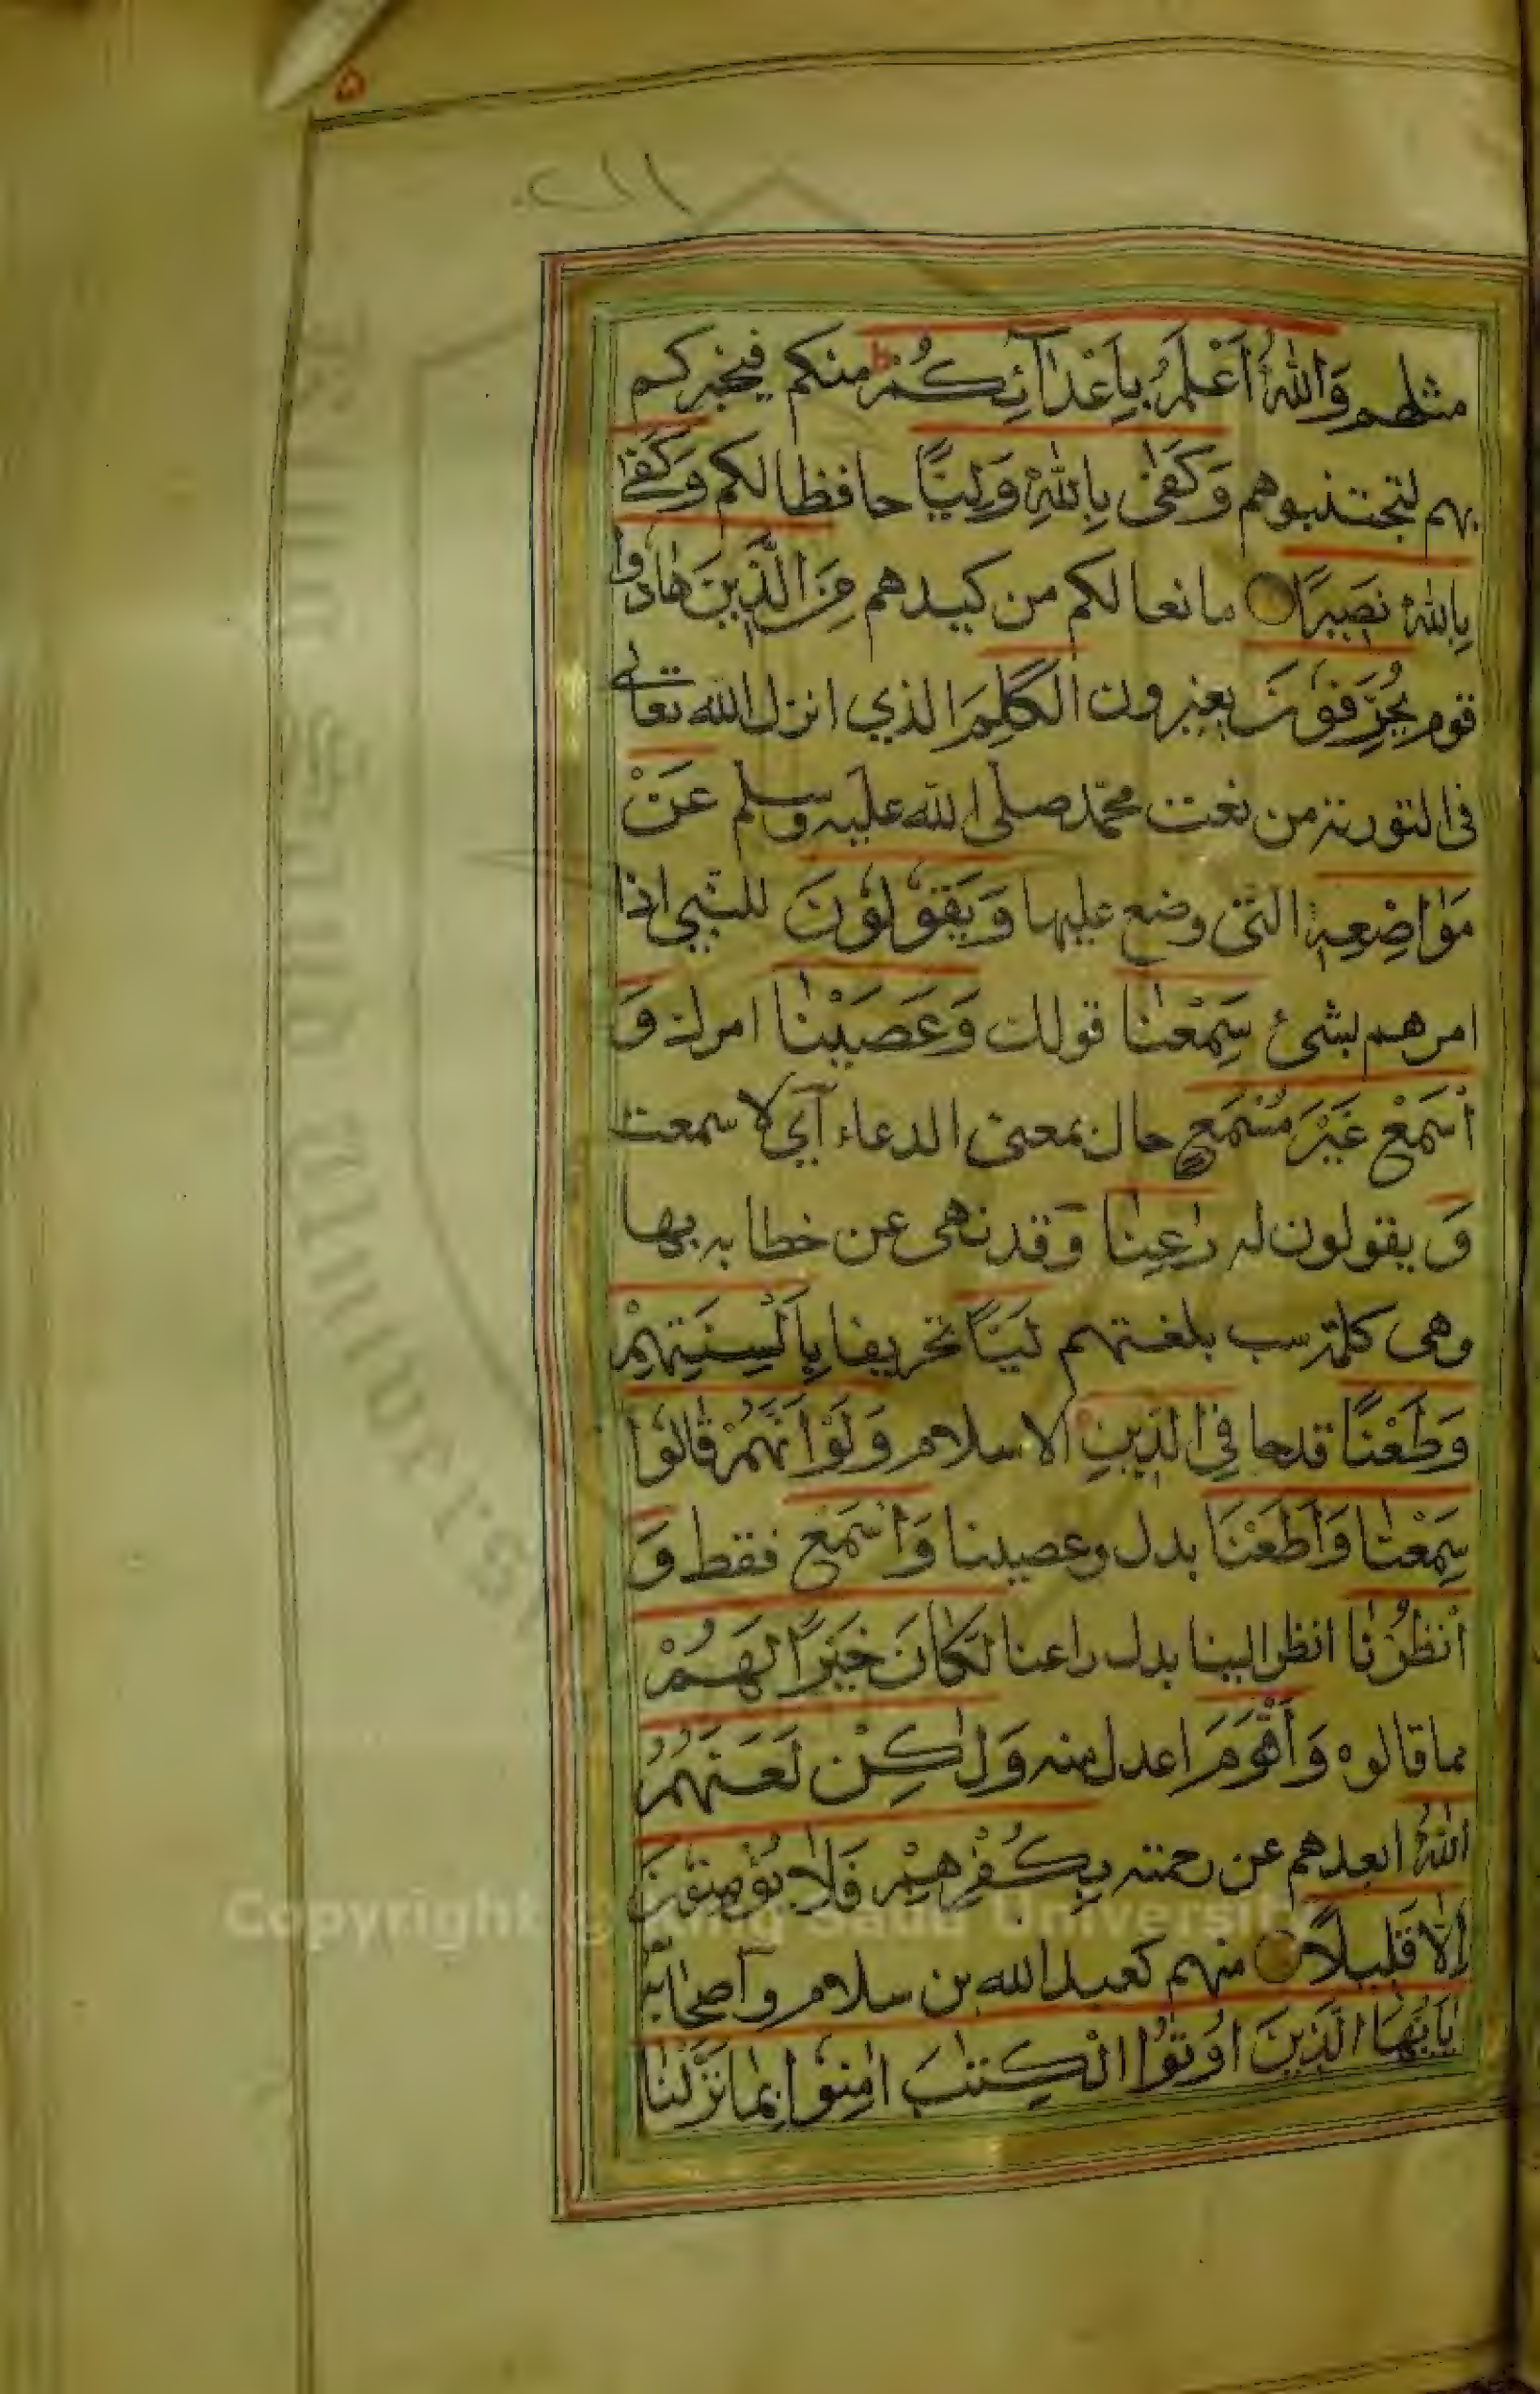 ۵
مثلهم وَاللّٰهُ اَعْلَمُ بِاَعْدَآئِكُمْ ط منكم فيخبركم
بهم لتجتنبوهم وَكَفٰى بِاللّٰهِ وَلِيًّا حافظا لكم وَكَفٰى
بِاللّٰهِ نَصِيرًا مانعا لكم من كيدهم مِنَ الَّذِينَ هَادُوا
قوم يُحَرِّفُونَ يغيرون الْكَلِمَ الذي انزل الله تعالى
فى التورىة من نعت محمّد صلى الله عليه وسلم عَنْ
مَوَاضِعِهٖ التى وضع عليها وَيَقُولُونَ للنبي اذا
امرهم بشىء سَمِعْنَا قولك وَعَصَيْنَا امرك وَ
اسْمَعْ غَيْرَ مُسْمَعٍ حال بمعنى الدعاء اي لا سمعت
وَ يقولون له رَاعِنَا وَقد نهى عن خطابه بها
وهى كلمة سب بلغتهم لَيًّا تحريفا بِاَلْسِنَتِهِمْ
وَطَعْنًا قدحا فِى الدِّينِ الاسلام وَلَوْ اَنَّهُمْ قَالُوا
سَمِعْنَا وَاَطَعْنَا بدل وعصينا وَاسْمَعْ فقط وَ
انْظُرْنَا انظر الينا بدل راعنا لَكَانَ خَيْرًا لَهُمْ
مما قالوه وَاَقْوَمَ اعدل منه وَلٰكِنْ لَعَنَهُمُ
اللّٰهُ ابعدهم عن رحمته بِكُفْرِهِمْ فَلَا يُؤْمِنُونَ
اِلَّا قَلِيلًا منهم كعبد الله بن سلام واصحابه
يَاَيُّهَا الَّذِينَ اُوتُوا الْكِتٰبَ اٰمِنُوا بِمَا نَزَّلْنَا
Copyright © King Saud University